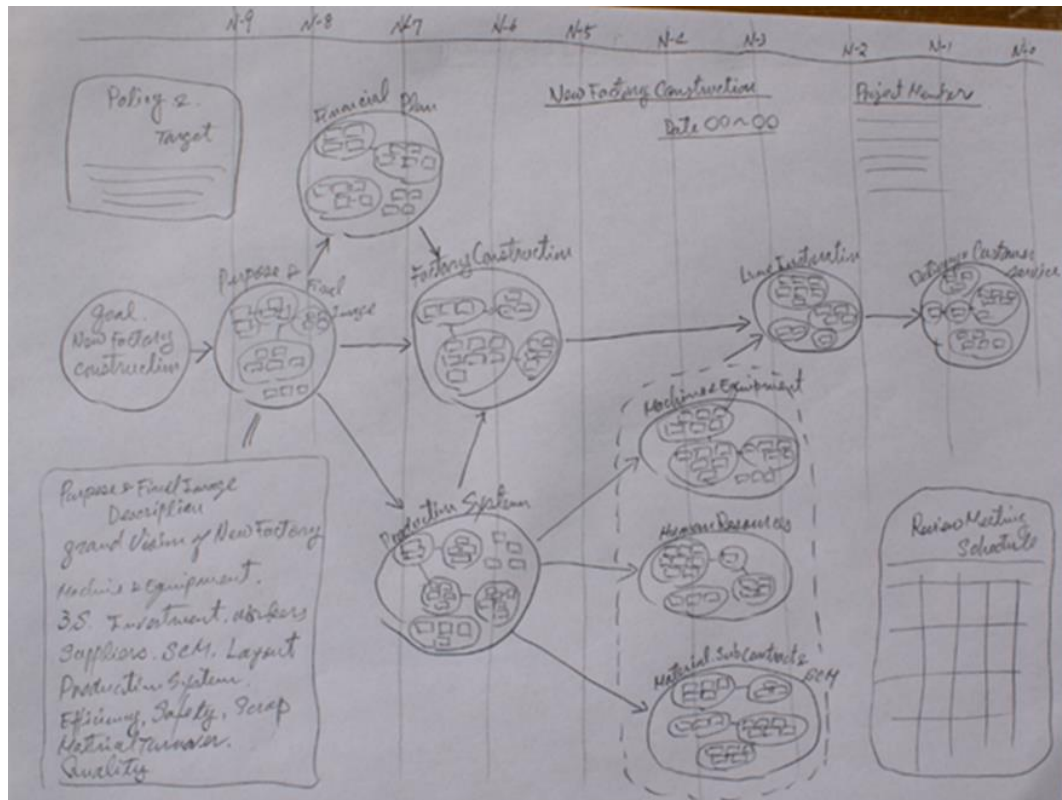 N-9 N-8 N-7 N-6 N-5 N-4 N-3 N-2 N-1 N-0
Policy &
Target
Financial Plan
New Factory Construction
Date 00~00
Project Members
goal.
New Factory
construction
Purpose &
Final
Image
Factory Construction
Line
Customer
Service
Machine & Equipment
Production System
Human Resources
Material. Subcontracts
SCM
Purpose & Final Image
Description
grand Vision of New Factory
Machine & Equipment.
3.S. Investment. workers
Suppliers. SCM. Layout
Production System.
Efficiency, Safety, Scrap
Material Turnover.
Quality
Review Meeting
Schedule